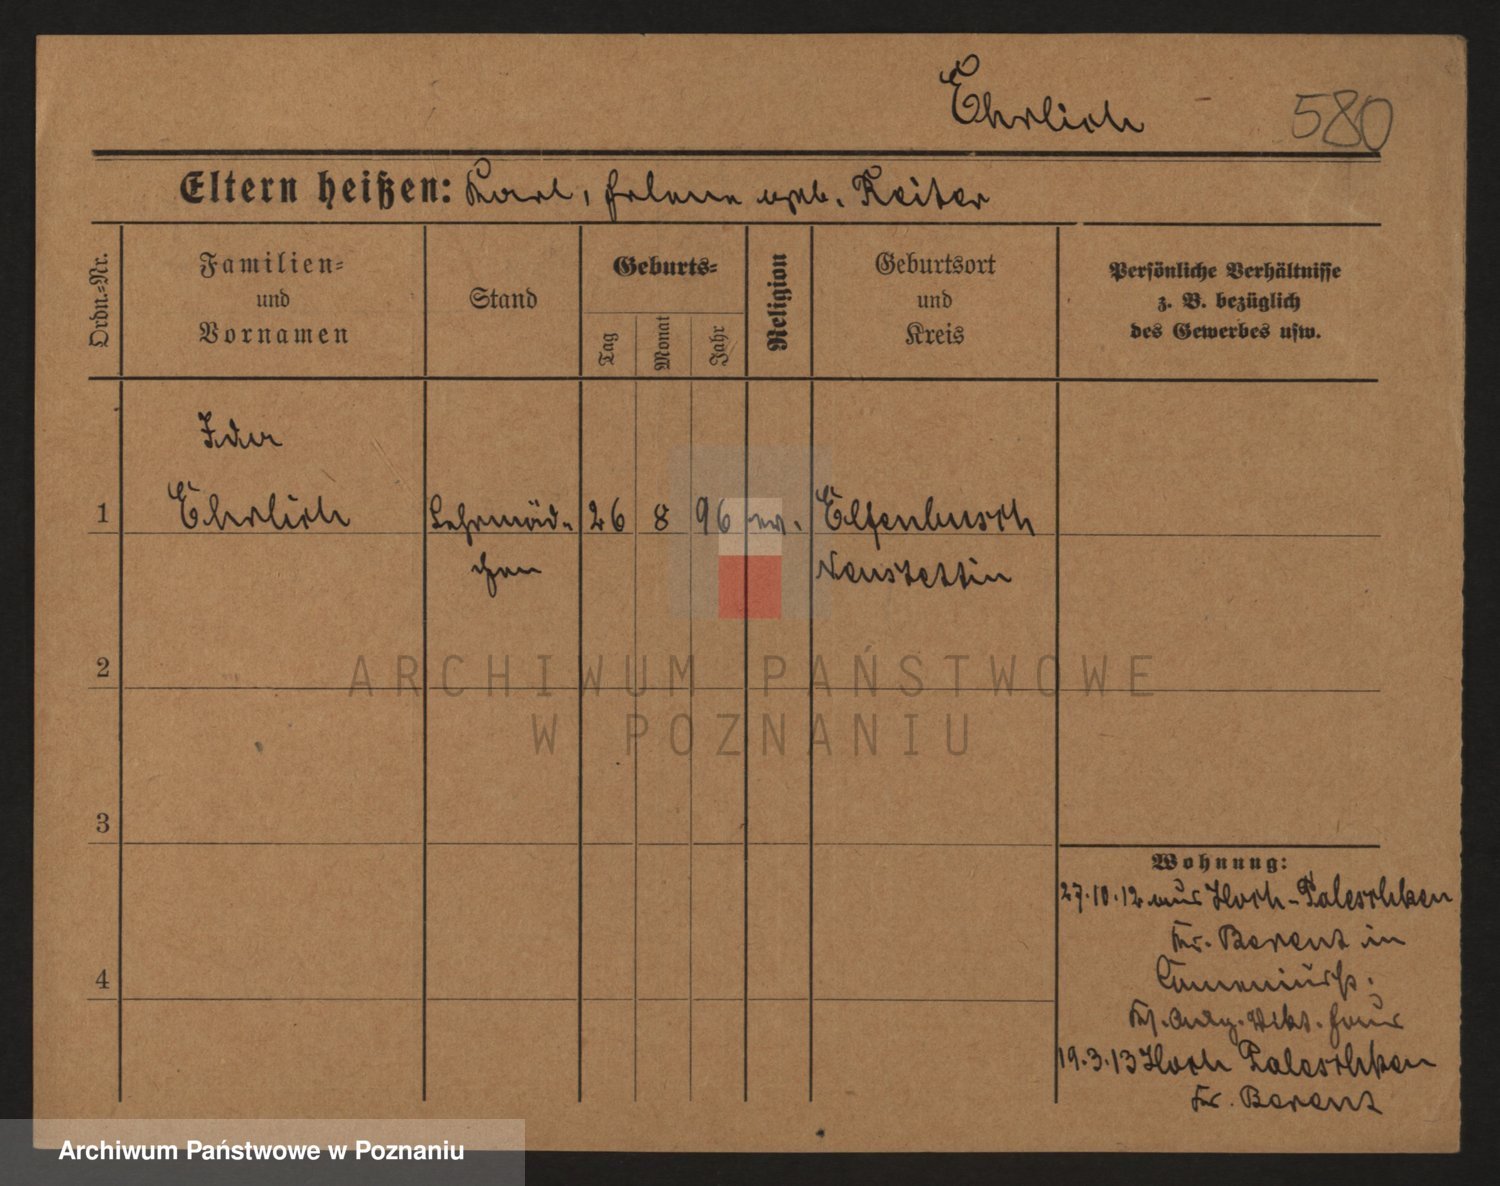 Ehrlich 580
Eltern heißen: Karl, Helene geb. Reiter
Ordn.-Nr.
Familien-
und
Vornamen
Stand
Geburts-
Tag
Monat
Jahr
Religion
Geburtsort
und
Kreis
Persönliche Verhältnisse
z. B. bezüglich
des Gewerbes usw.
Ida
1 Ehrlich Lehrmäd- 26 8 96 ev. Elfenbusch
chen Neustettin
2
ARCHIWUM PAŃSTWOWE
W POZNANIU
3
Wohnung:
27.10.12 aus Hoch-Paleschken
Kr. Berent in
4
19.3.13 Hoch Paleschken
Kr. Berent
Archiwum Państwowe w Poznaniu